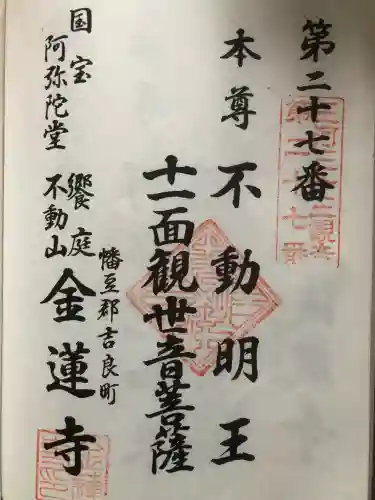 第二十七番
本尊 不動明王
十一面観世音菩薩
幡豆郡吉良町
饗庭 不動山 金蓮寺
国宝 阿弥陀堂